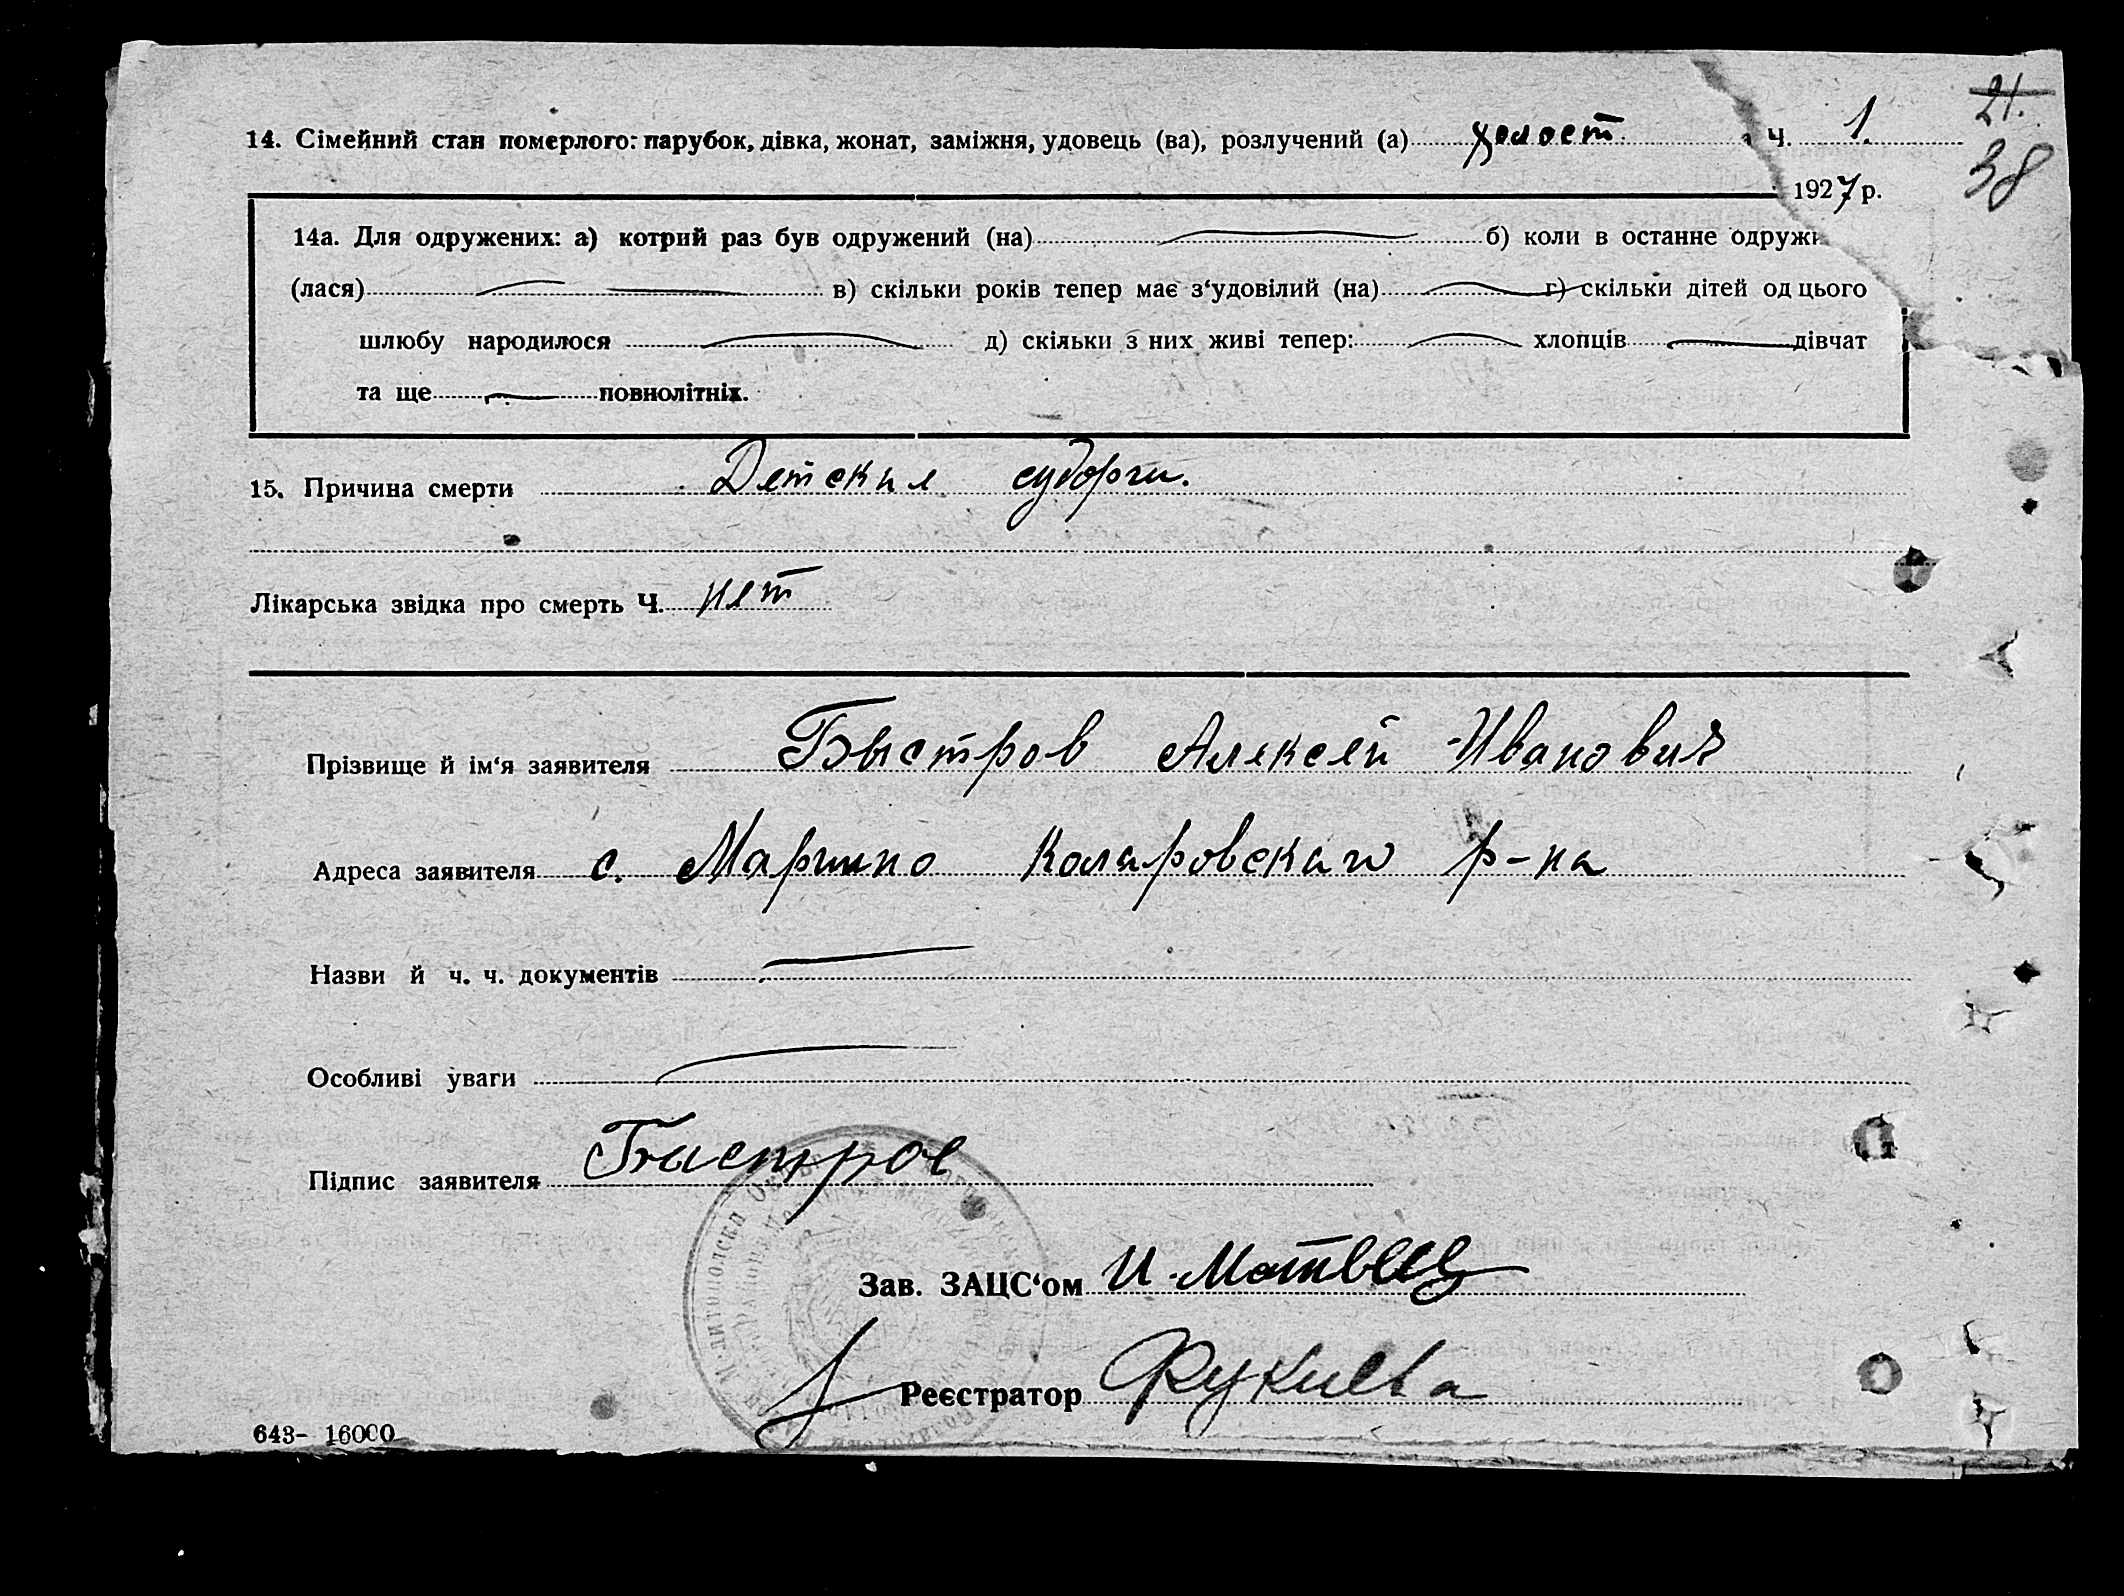 21.
14. Сімейний стан померлого: парубок, дівка, жонат, заміжня, удовець (ва), розлучений (а) холост. Ч. 1.
38
1927 р.
14а. Для одружених: а) котрий раз був одружений (на) б) коли в останне одружи
(лася) в) скільки років тепер має з‘удовілий (на) г) скільки дітей од цього
шлюбу народилося д) скільки з них живі тепер: хлопців дівчат
та ще повнолітніх.
15. Причина смерти Детския судорги.
Лікарська звідка про смерть Ч. нет
Прізвище й ім‘я заявителя Быстров Алексей Иванович
Адреса заявителя с. Марино Коларовскаго р-на
Назви й ч. ч. документів
Особливі уваги
Підпис заявителя Быстров
Зав. ЗАЦС‘ом
Реєстратор
643- 16000